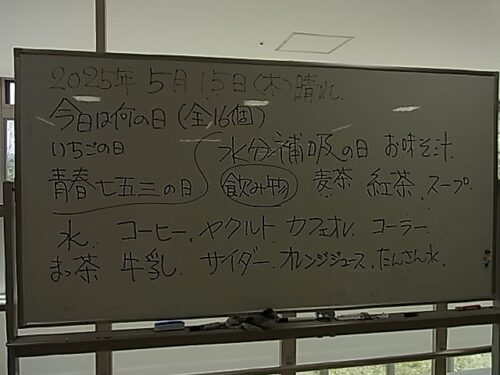 2025年5月15日(木)晴れ
今日は何の日(全16個)
いちごの日
青春七五三の日
水分補吸の日 お味そ汁
飲み物 麦茶 紅茶、スープ
水、コーヒー、ヤクルト カフェオレ コーラー
まっ茶 牛乳、サイダー、オレンジジュース、たんさん水、